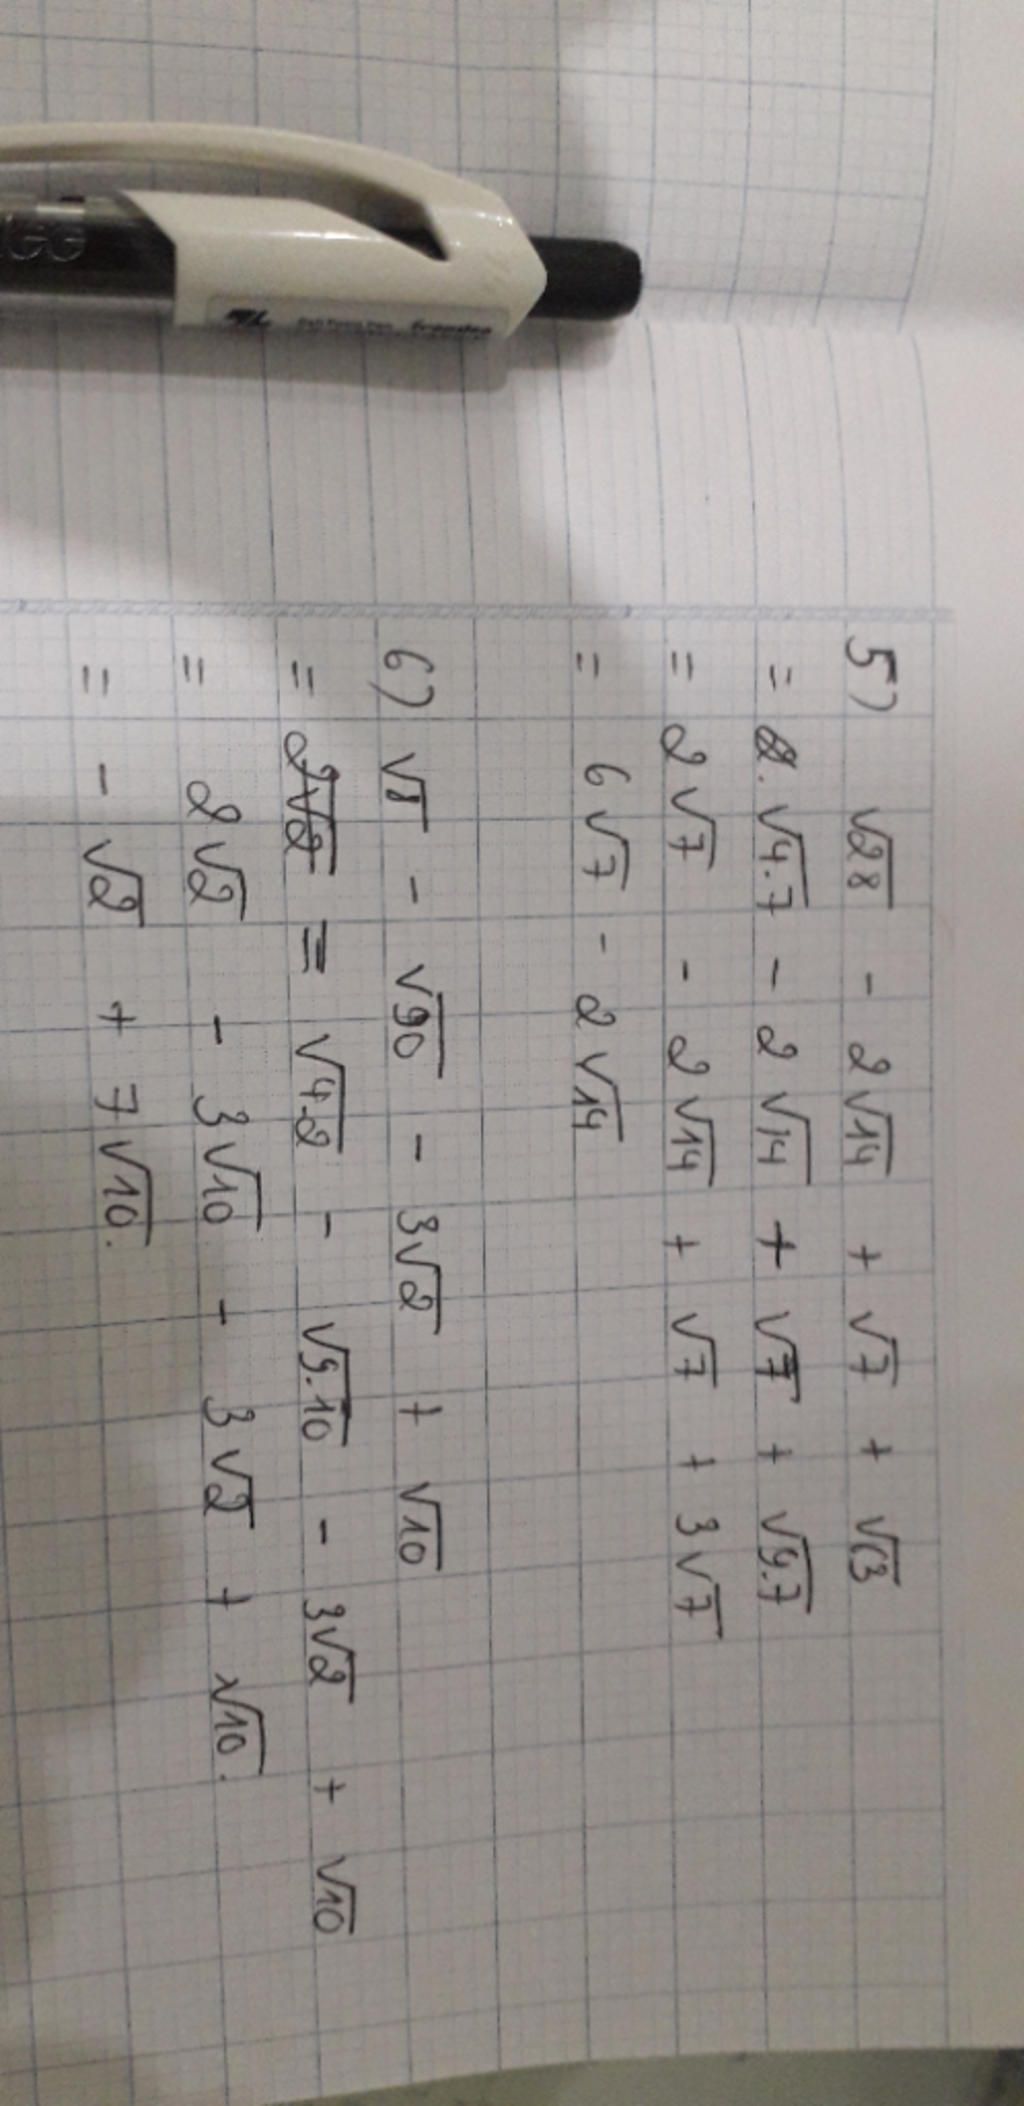 5) √28 - 2√14 + √7 + √63
= 2. √4.7 - 2√14 + √7 + √9.7
= 2√7 - 2√14 + √7 + 3√7
= 6√7 - 2√14
6) √8 - √90 - 3√2 + √10
= 2√2 = √4.2 - √9.10 - 3√2 + √10
= 2√2 - 3√10 - 3√2 + √10.
= - √2 + 7√10.